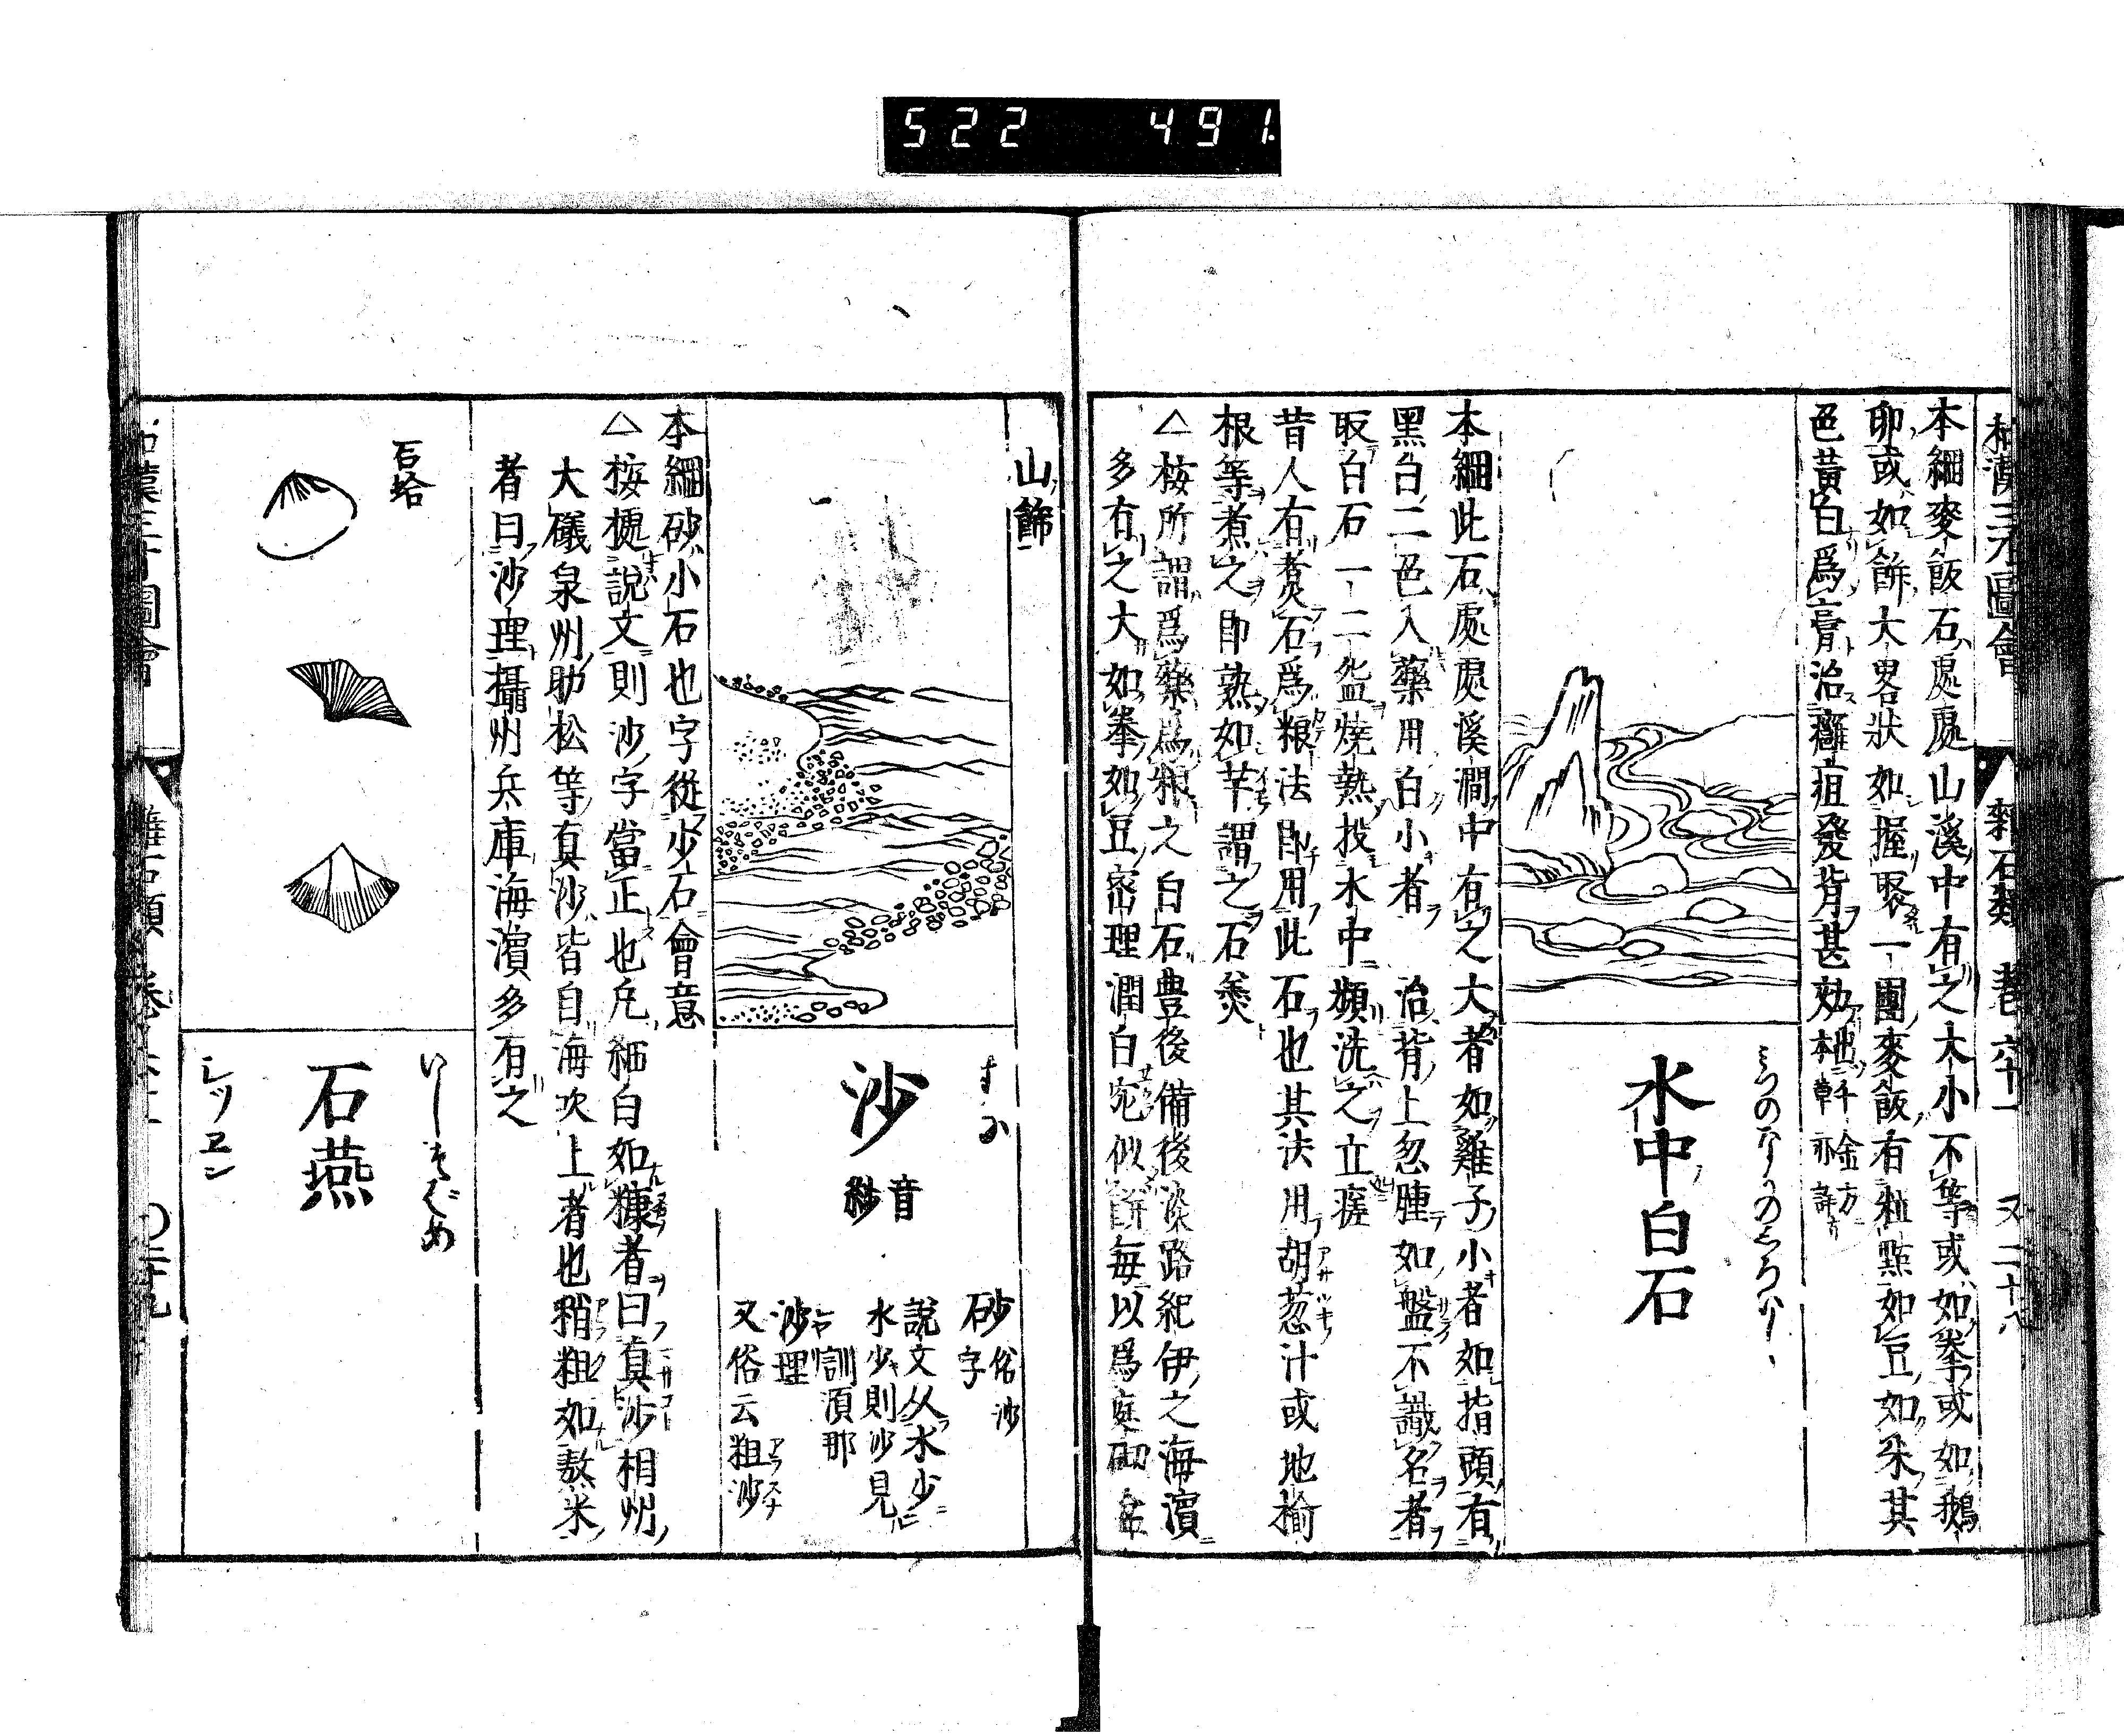 522 491
和漢三才圖會 雜石類 卷六十一 又二十八
本綱麥飯石處處山溪中有之大小不等或如拳或如鵝
卵或如餅大畧狀如握聚一團麥飯有粒點如豆如米其
色黃白爲膏治癰疽發背甚効出千金方本草亦詳
みづのなかのしろいし
水中白石
本綱此石處處溪澗中有之大者如雞子小者如指頭有
黑白二色入藥用白小者 治背上忽腫如盤不識名者
取白石一二盌燒熱投水中頻洗之立瘥
昔人有煮石爲粮法即用此石也其法用胡葱汁或地榆
根等煮之即熟如芋謂之石羹
△按所謂爲藥爲粮之白石豊後備後淡路紀伊之海濵
多有之大如拳如豆密理潤白宛似餅每以爲庭砌盆
山飾
すな
沙 音紗
砂 俗沙字
石
說文从水少
水少則沙見
訓須那
沙理
又俗云粗沙
本綱砂小石也字從少石會意
△按據說文則沙字當正也凡細白如糠者曰眞沙相州
大礒泉州助松等眞沙皆自海吹上者也稍粗如熬米
者曰沙理攝州兵庫海濵多有之
石蛤
いしつばめ
石燕
シツヱン
和漢三才圖會 雜石類 卷六十一 〇二十九